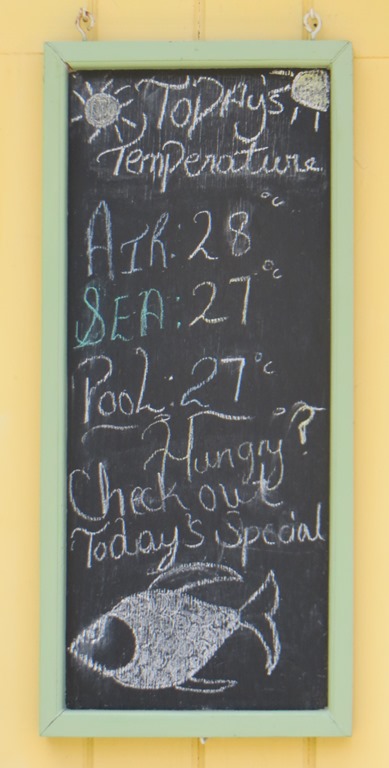 Today's
Temperature
AIR: 28 °C
SEA: 27 °C
Pool: 27 °C
Hungry?
Check out
Today's Special